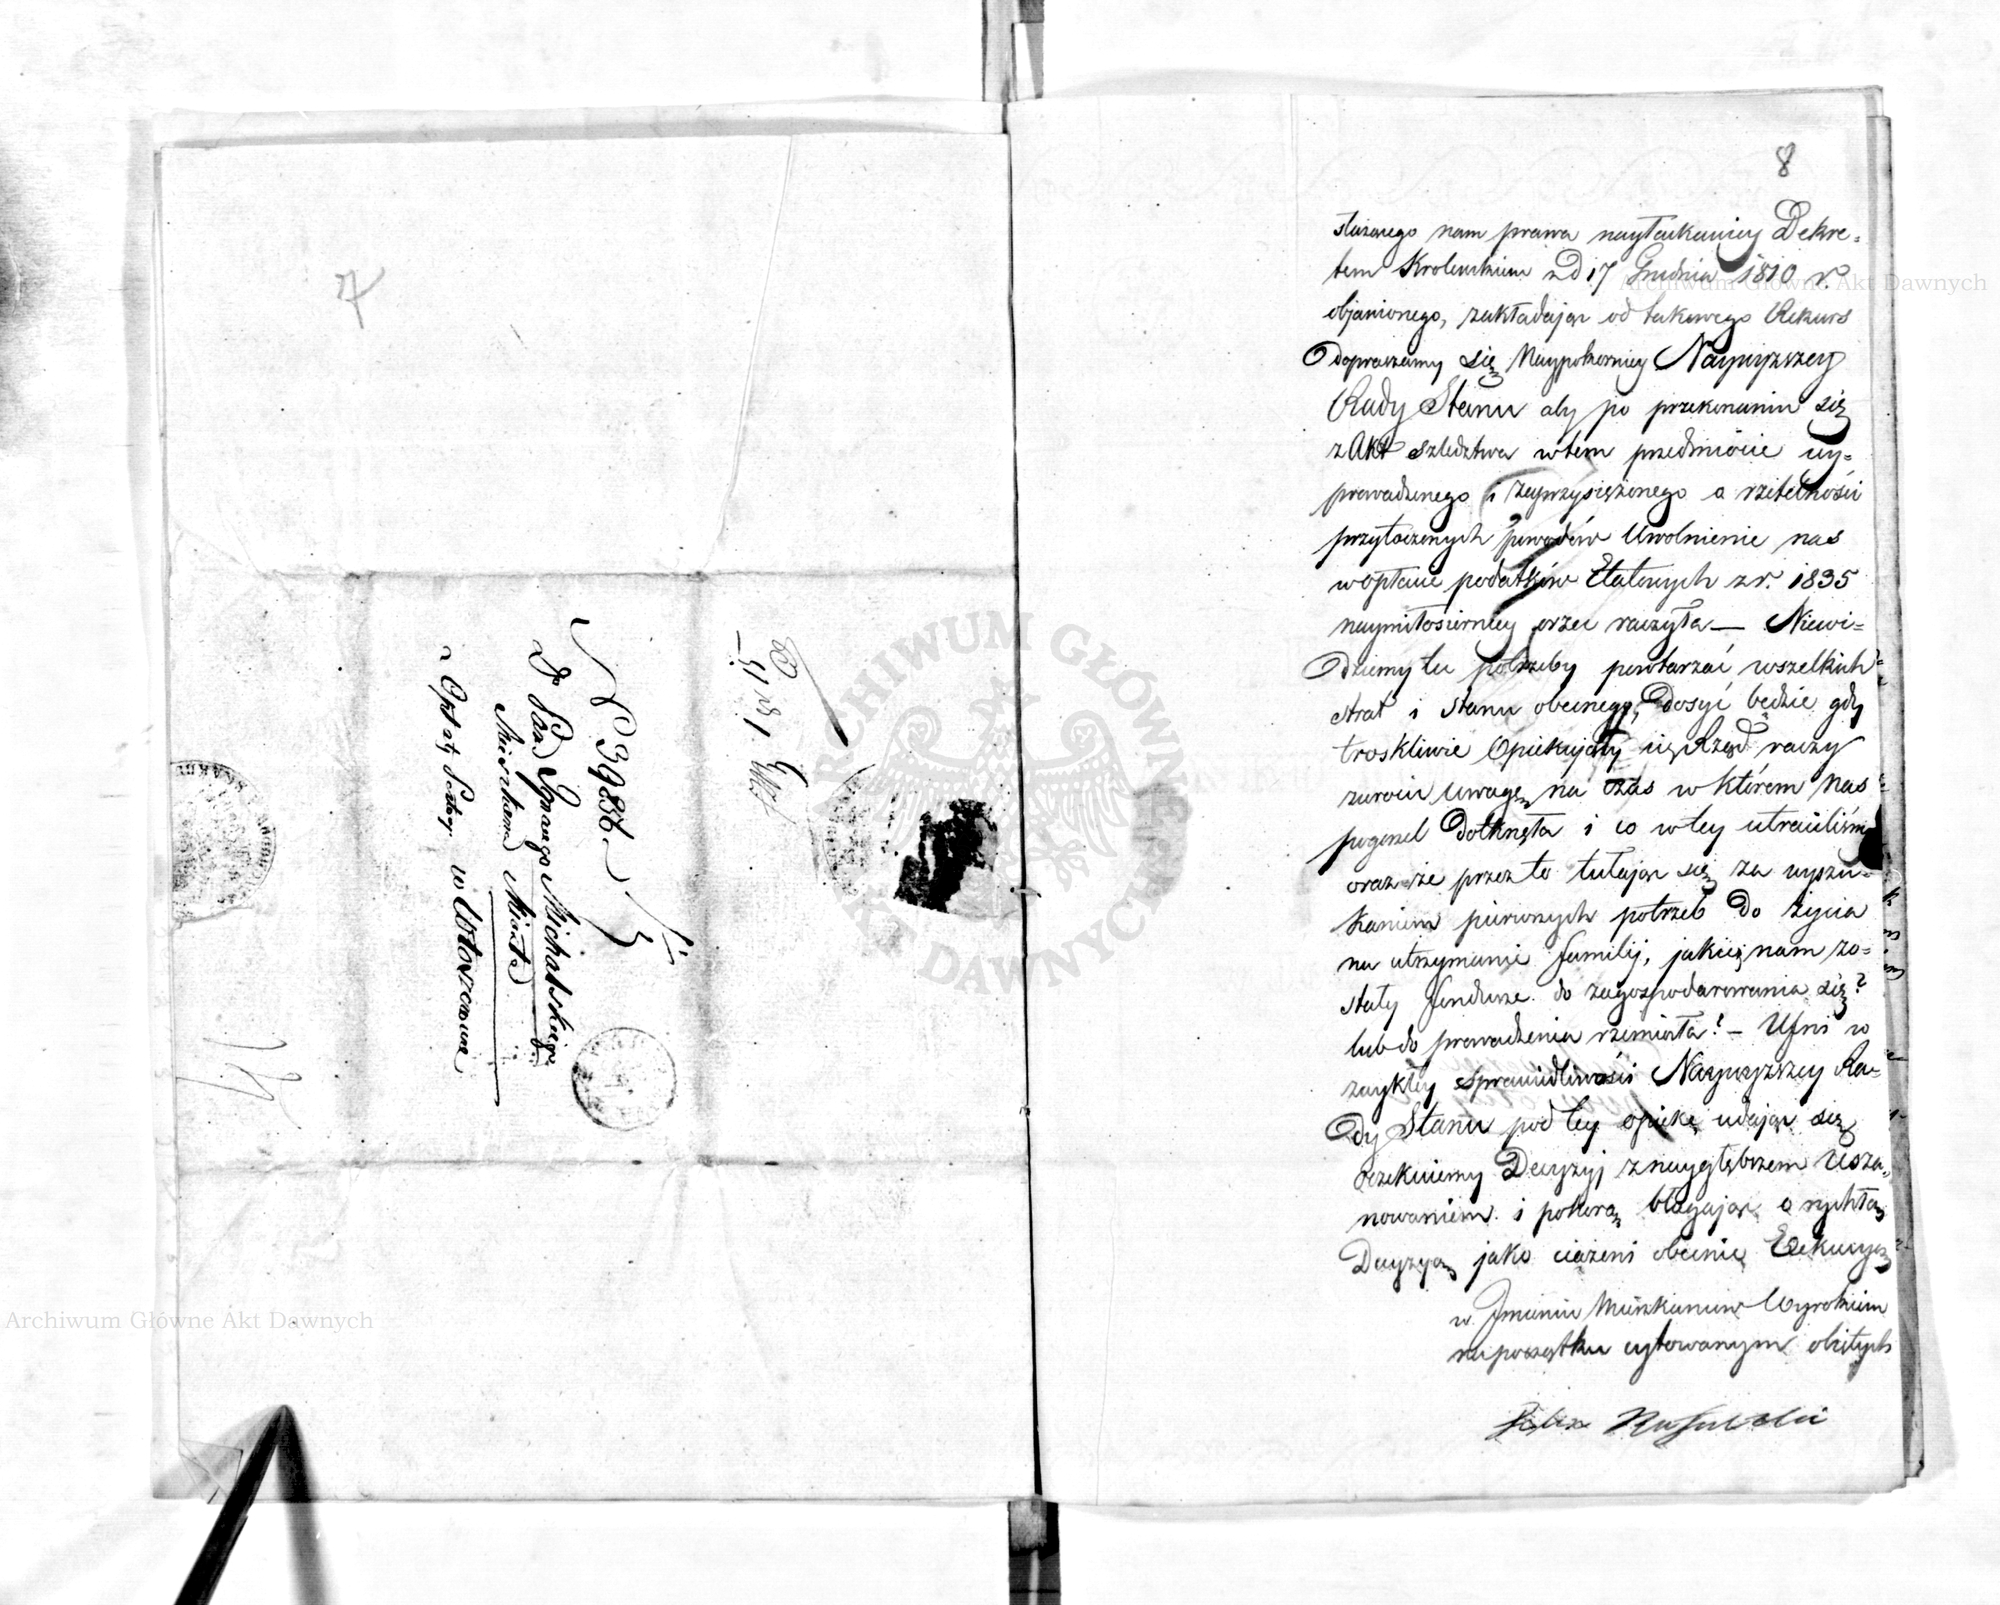 N 39886.
Do Pana Ignacego Michalskiego
Mieszkańca Miasta
Opłatą Poczty w Włoszczowie
8
służącego nam prawa nayłaskawiey Dekre=
tem Krolewskim z D 17 Grudnia 1810 r.
objawionego, zakładając od takowego Rekurs
Dopraszamy się Naypokorniey Naywyższey
Rady Stanu aby po przekonaniu się
z Akt szledztwa w tem przedmiocie wy=
prowadzonego i zaprzysiężonego o rzetelności
przytoczonych powodów Uwolnienie nas
w opłacie podatków Etatowych z r. 1835
naymiłosierniey orzec raczyła — Niewi=
dziemy tu potrzeby powtarzać wszelkich
strat i stanu obecnego, Dosyć będzie gdy
troskliwie Opiekujący się Rząd raczy
zwrócić uwagę na czas w którem nas
pogorzel Dotknęła i co w tey utraciliśmy
oraz że przez to tułając się za wyszu=
kaniem pierwszych potrzeb Do życia
na utrzymanie familij, jakież nam zo=
stały fundusze do zagospodarowania się?
lub do prowadzenia rzemiosła? — Ufni w
zwykłey sprawiedliwości Naywyższey Ra=
dy Stanu pod tey opiekę udając się
oczekujemy Decyzyj z naygłębszem usza=
nowaniem i pokorą błagając o rychłą
Decyzyą jako ciążeni obecnie Exekucyą
w Imieniu Mieszkańców Wyrokiem
na początku cytowanym objętych
Archiwum Główne Akt Dawnych
Archiwum Główne Akt Dawnych
ARCHIWUM GŁÓWNE AKT DAWNYCH